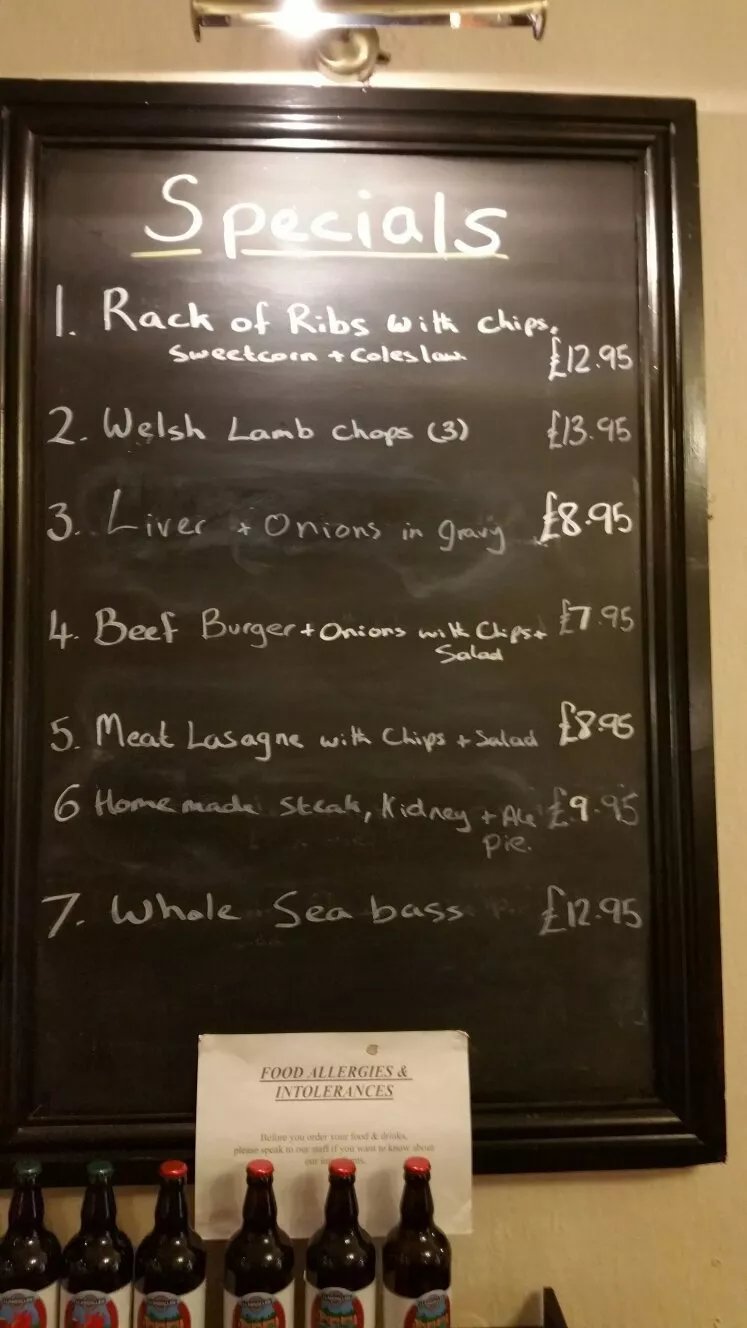 Specials
1. Rack of Ribs with chips,
Sweetcorn + Coleslaw £12.95
2. Welsh Lamb Chops (3) £13.95
3. Liver + Onions in gravy £8.95
4. Beef Burger + Onions with Chips + £7.95
Salad
5. Meat Lasagne with Chips + Salad £8.95
6 Homemade Steak, Kidney + Ale £9.95
pie.
7. Whole Sea bass £12.95
FOOD ALLERGIES &
INTOLERANCES
Before you order your food & drinks,
please speak to our staff if you want to know about
our